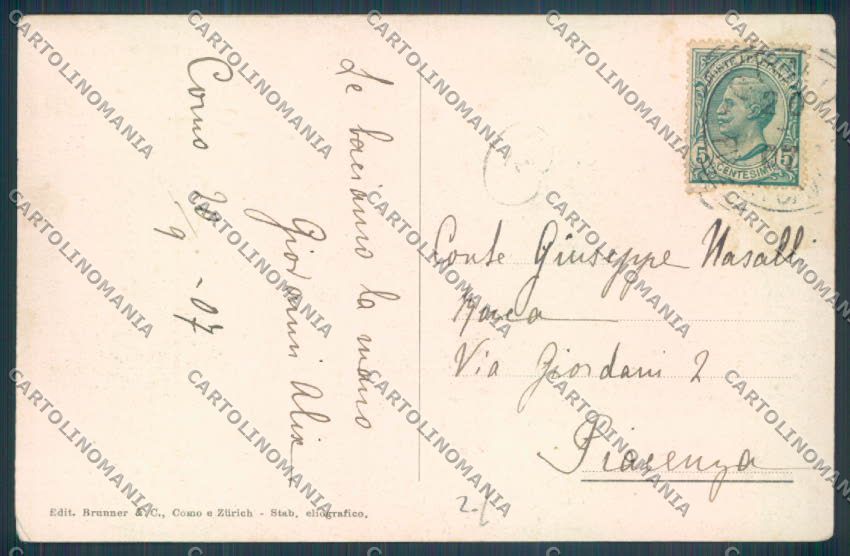 Como 20/9 - 07
Le baciamo la mano
Giovanni Alix
POSTE ITALIANE
5 CENTESIMI 5
Conte Giuseppe Nasalli
Rocca
Via Giordani 2
Piacenza
Edit. Brunner & C., Como e Zürich - Stab. eliografico.
CARTOLINOMANIA